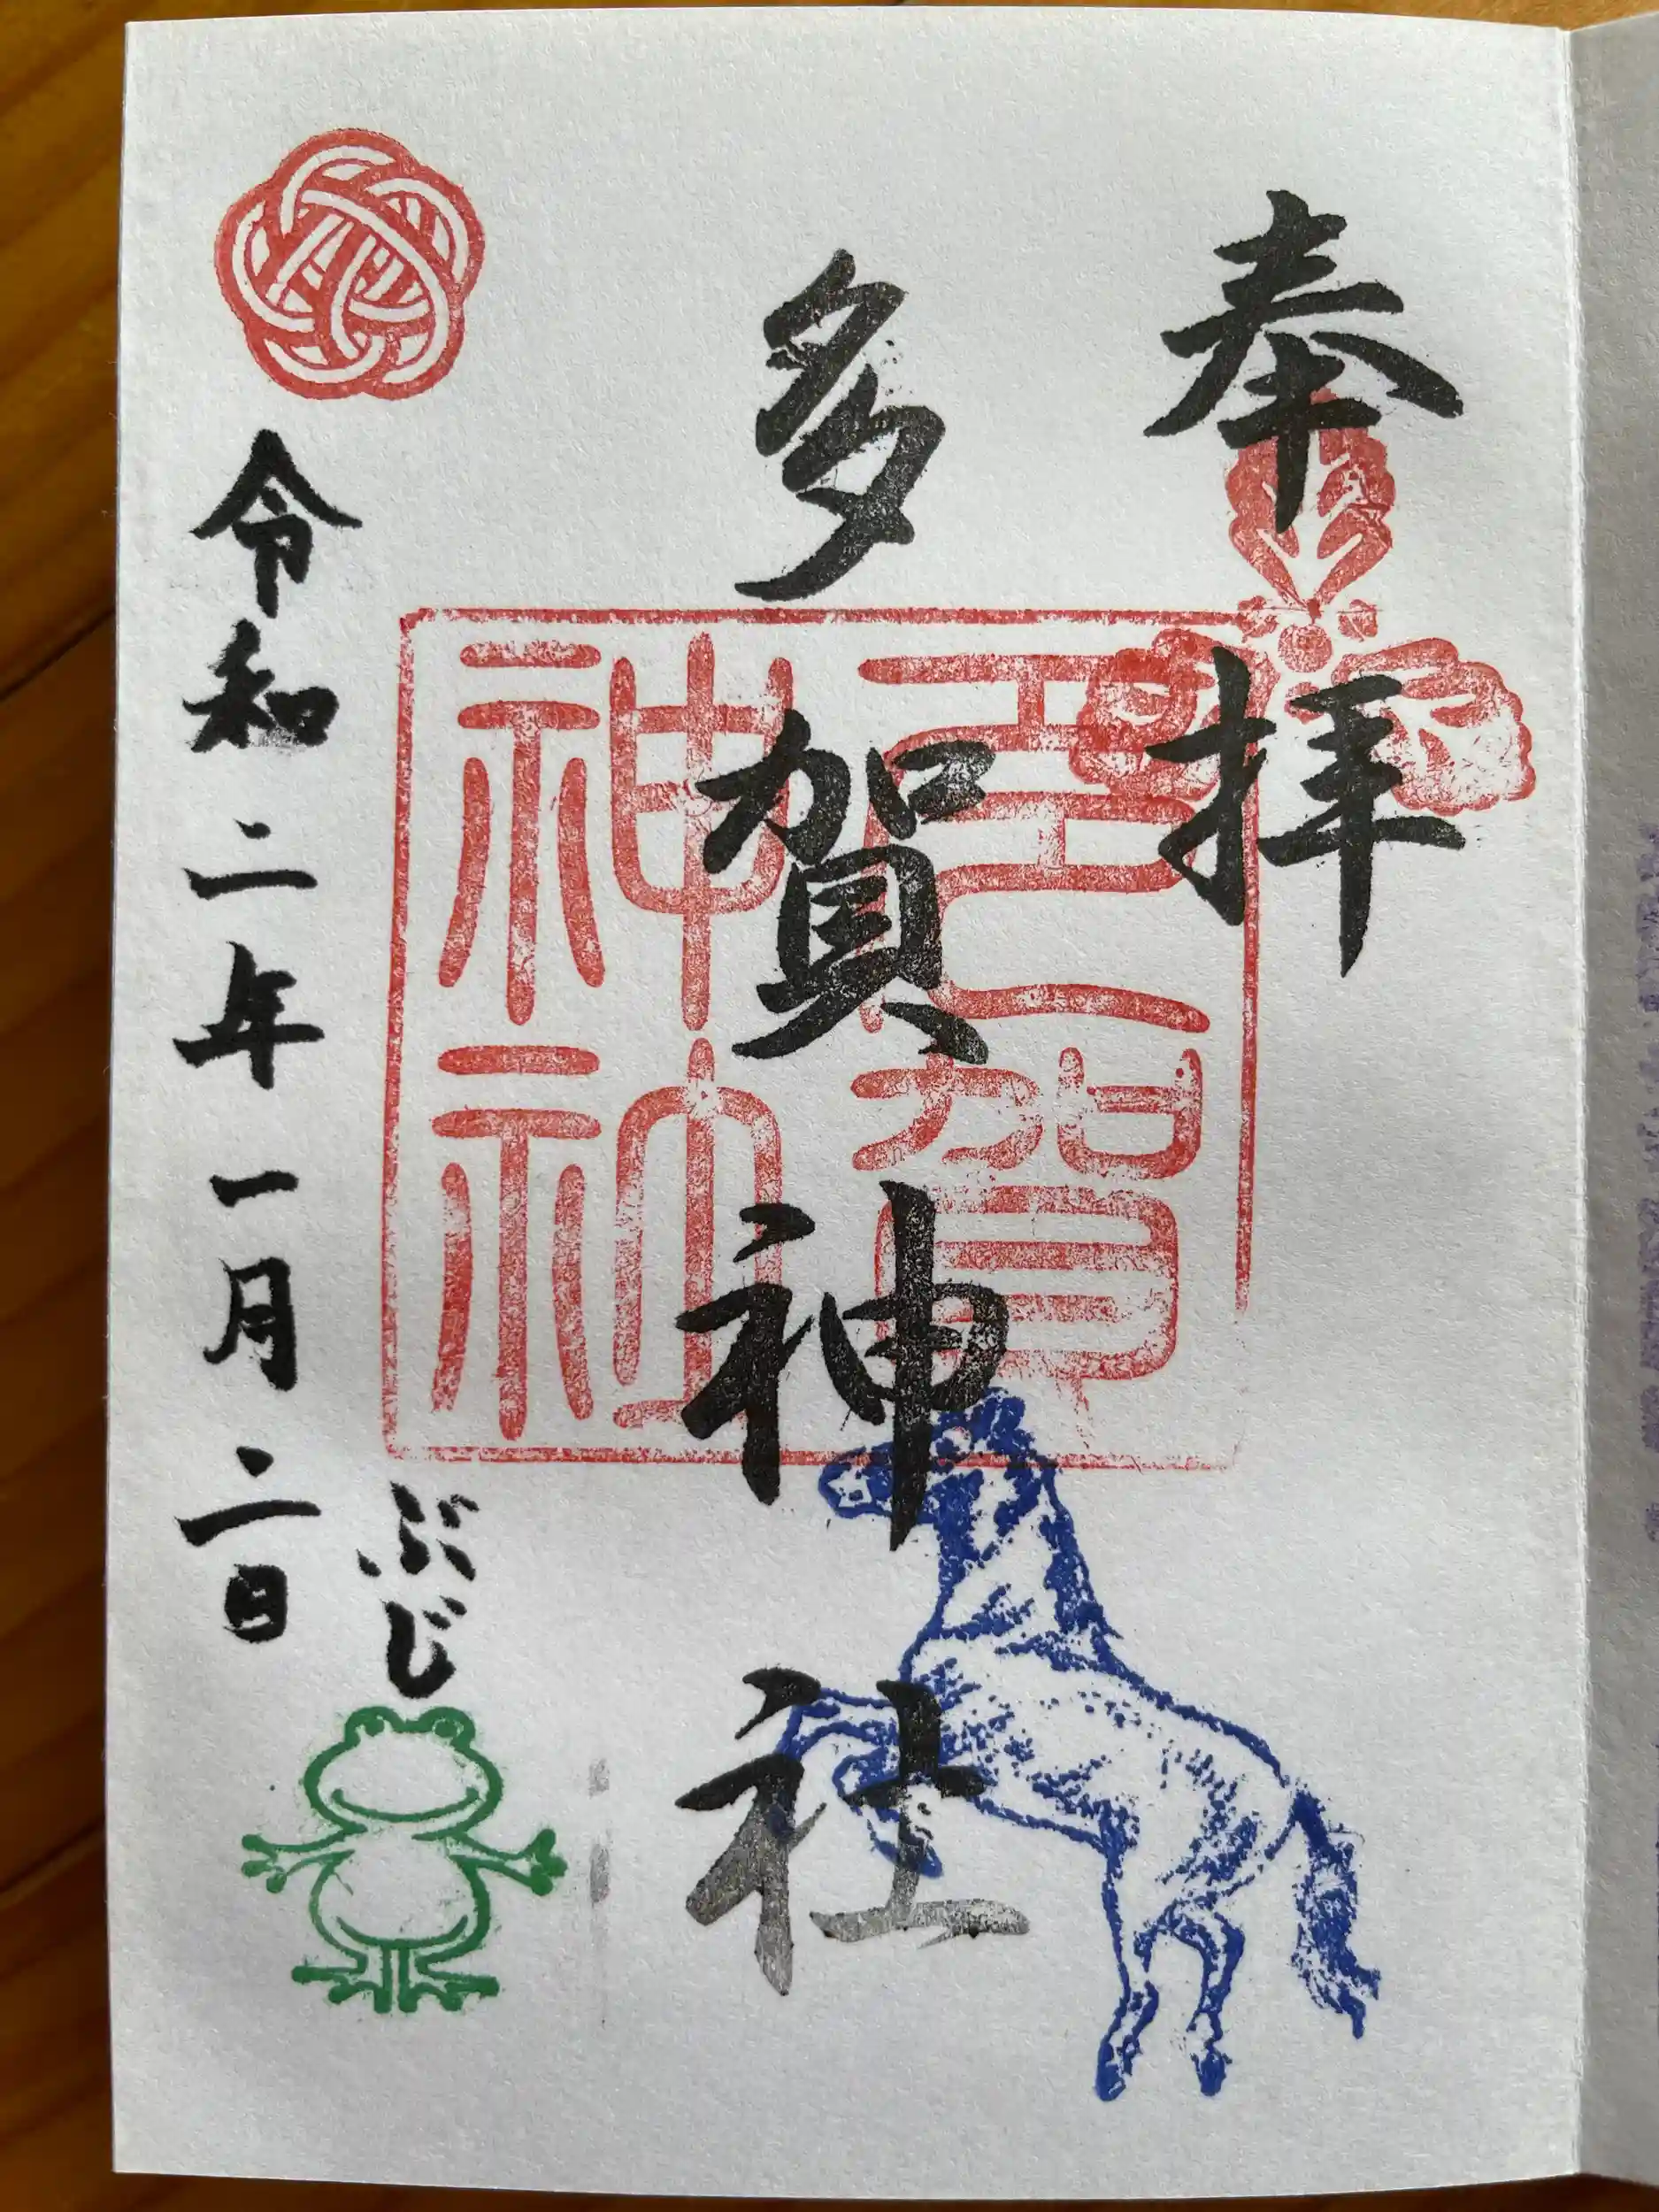 奉拝
多賀神社
多賀
神社
令和二年一月二日
ぶじ